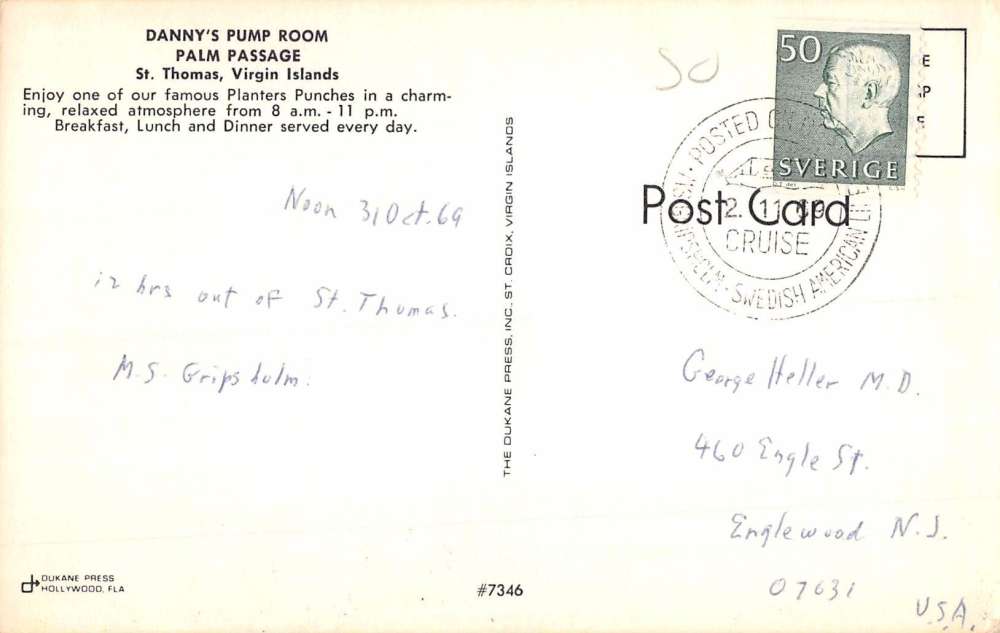 DANNY'S PUMP ROOM
PALM PASSAGE
St. Thomas, Virgin Islands
Enjoy one of our famous Planters Punches in a charm-
ing, relaxed atmosphere from 8 a.m. - 11 p.m.
Breakfast, Lunch and Dinner served every day.
Noon 31 Oct. 69
12 hrs out of St. Thomas.
M.S. Gripsholm.
DUKANE PRESS
HOLLYWOOD, FLA
THE DUKANE PRESS, INC. ST. CROIX, VIRGIN ISLANDS
#7346
50
50
SVERIGE
POSTED
2. 11. 69
CRUISE
SWEDISH AMERICAN
Post Card
George Heller M.D.
460 Engle St.
Englewood N.J.
07631
U.S.A.